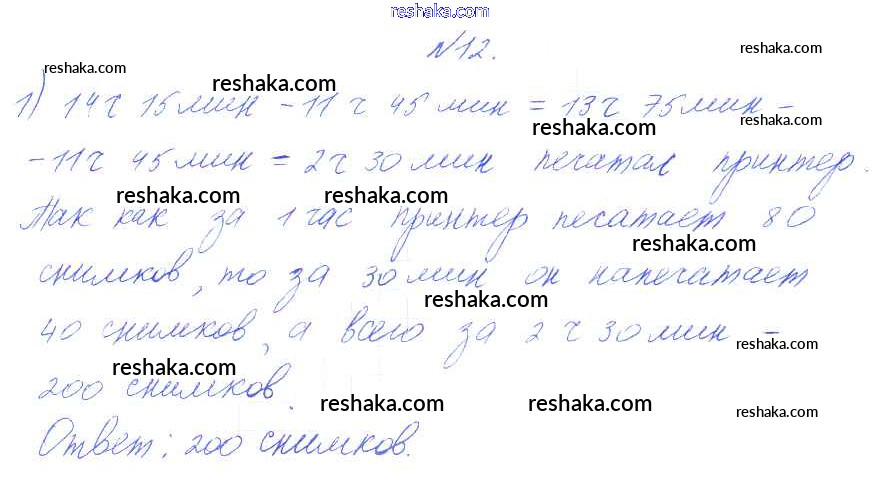 reshaka.com
N12.
reshaka.com
reshaka.com
reshaka.com
1) 14 ч 15 мин - 11 ч 45 мин = 13 ч 75 мин -
reshaka.com
reshaka.com
- 11 ч 45 мин = 2 ч 30 мин печатал принтер.
reshaka.com
reshaka.com
Так как за 1 час принтер печатает 80
reshaka.com
снимков, то за 30 мин он напечатает
reshaka.com
40 снимков, а всего за 2 ч 30 мин -
reshaka.com
reshaka.com
200 снимков.
reshaka.com
reshaka.com
reshaka.com
Ответ: 200 снимков.